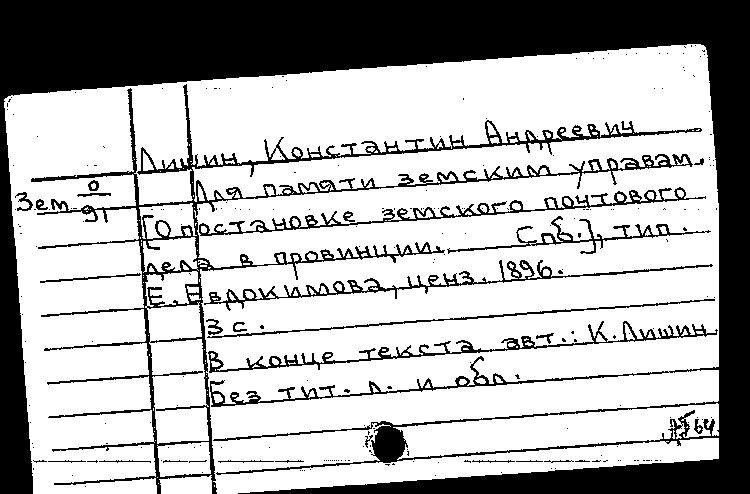 Лишин, Константин Андреевич
Зем О/91 Для памяти земским управам.
[О постановке земского почтового
дела в провинции. Спб.], тип.
Е. Евдокимова, ценз. 1896.
3 с.
В конце текста авт.: К. Лишин
Без тит. л. и обл.
64